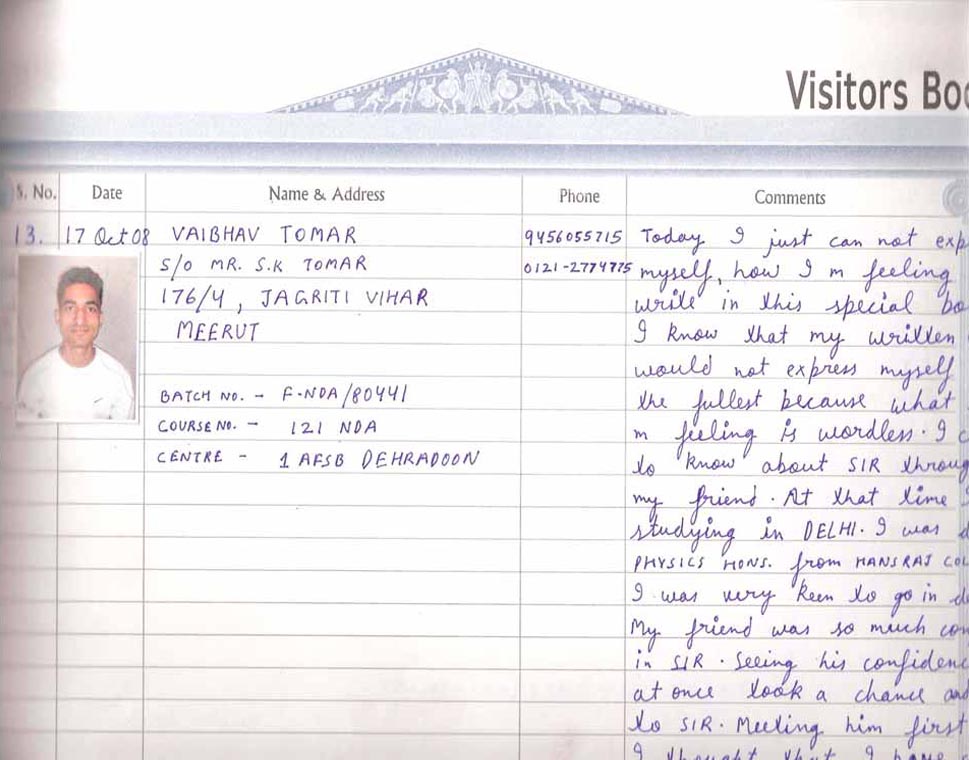 Visitors Boo
S. No. Date Name & Address Phone Comments
13. 17 Oct 08 VAIBHAV TOMAR 9456055715 Today I just can not exp
S/O MR. S.K TOMAR 0121-2774775 myself, how I m feeling
176/4, JAGRITI VIHAR write in this special bo
MEERUT I know that my written
would not express myself
BATCH NO. - F-NDA/80441 the fullest because what
COURSE NO. - 121 NDA m feeling is wordless. I c
CENTRE - 1 AFSB DEHRADOON to know about SIR throug
my friend. At that time I
studying in DELHI. I was d
PHYSICS HONS. from HANSRAJ COL
I was very keen to go in de
My friend was so much con
in SIR. Seeing his confidenc
at once took a chance and
to SIR. Meeting him first
I thought that I have